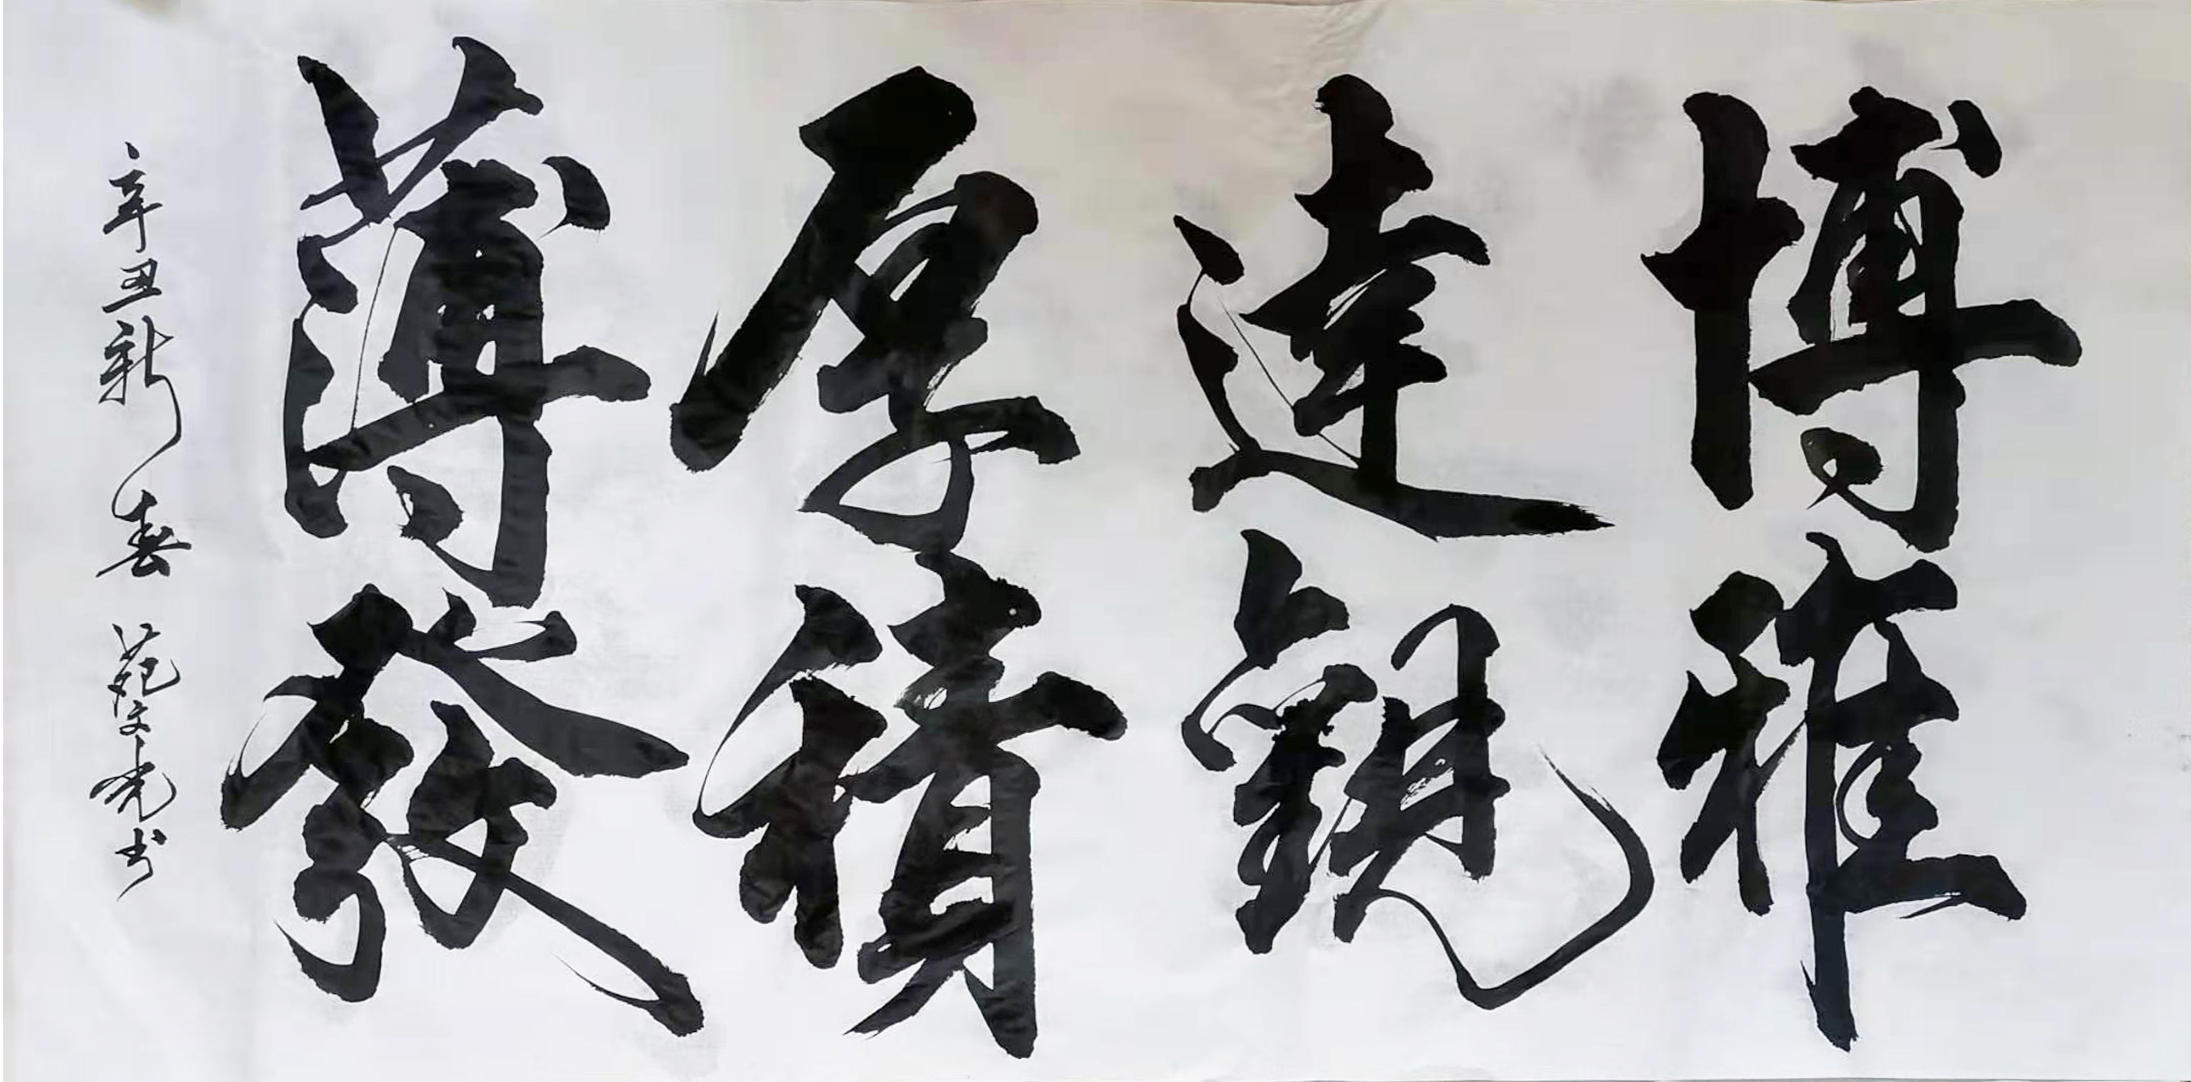 博雅
達觀
厚積
薄發
辛丑新春 范文光书